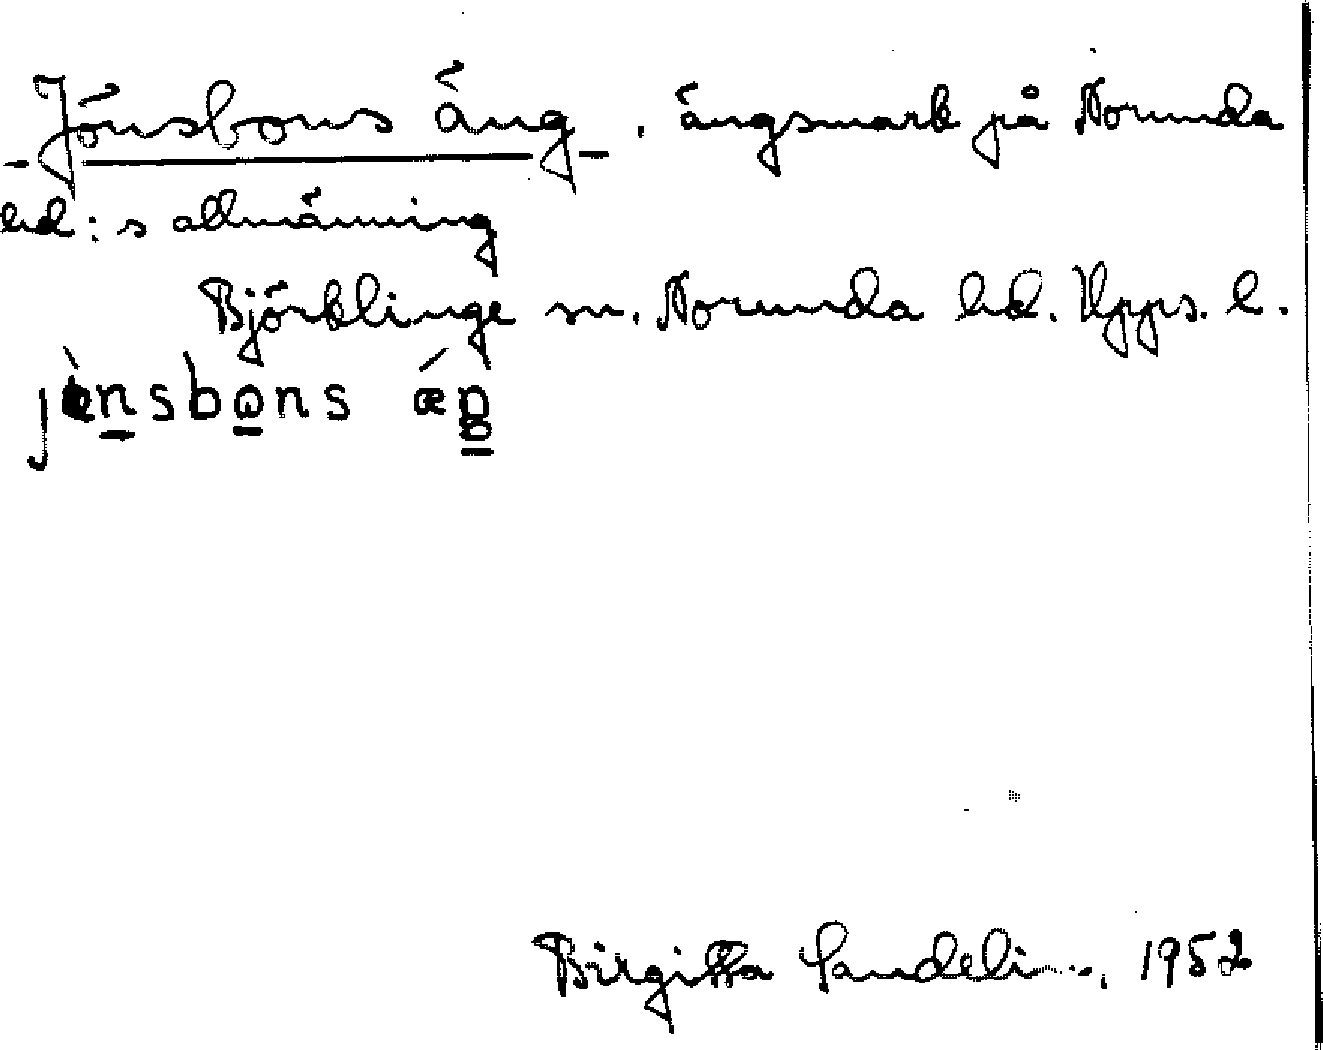 Jönsbons äng, ängsmark på Norunda
hd:s allmänning
Björklinge sn. Norunda hd. Upps. l.
jö̀nsbons ǽŋ
Birgitta Sandelin, 1952